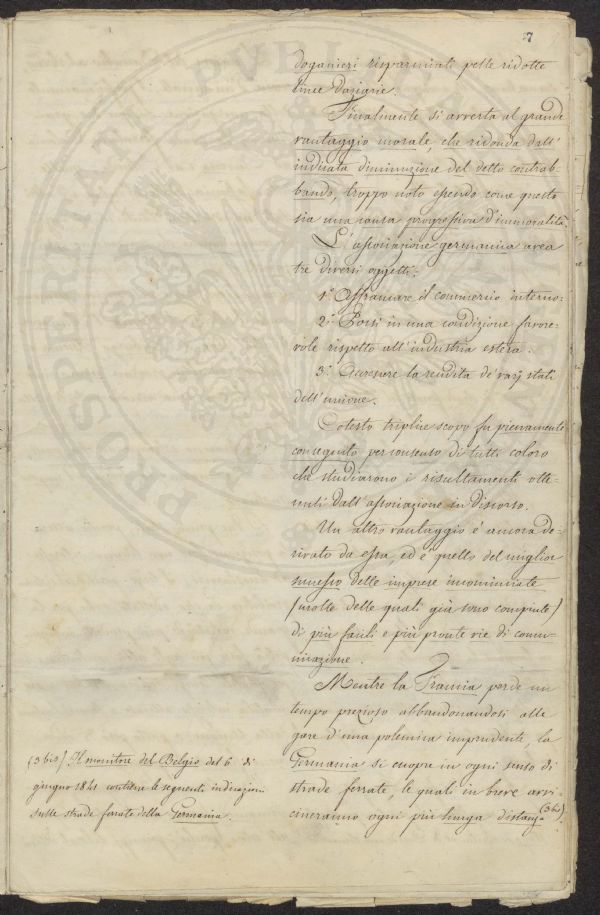 7
doganieri risparmiati pelle ridotte
linee daziarie.
Finalmente si avverta al grande
vantaggio morale, che ridonda dall'
indicata diminuzione del detto contrab-
bando, troppo noto essendo come questo
sia una causa progressiva d'immoralità.
L'associazione germanica avea
tre diversi oggetti:
1.° Affrancare il commercio interno:
2.° Porsi in una condizione favore-
vole rispetto all'industria estera.
3.° Accrescere la rendita de' varj stati
dell'unione.
Cotesto triplice scopo fu pienamente
conseguito per consenso di tutti coloro
che studiarono i risultamenti otte-
nuti dall'associazione in discorso.
Un altro vantaggio è ancora de-
rivato da essa, ed è quello del miglior
successo delle imprese incominciate
(molte delle quali già sono compiute)
di più facili e più pronte vie di comu-
nicazione.
Mentre la Francia perde un
tempo prezioso abbandonandosi alle
gare d'una polemica imprudente, la
Germania si cuopre in ogni senso di
strade ferrate, le quali in breve avvi-
cineranno ogni più lunga distanza (3 bis).
(3 bis) Il monitore del Belgio del 6 di
giugno 1841 contiene le seguenti indicazioni
sulle strade ferrate della Germania.
PROSPERITATI PUBLICAE